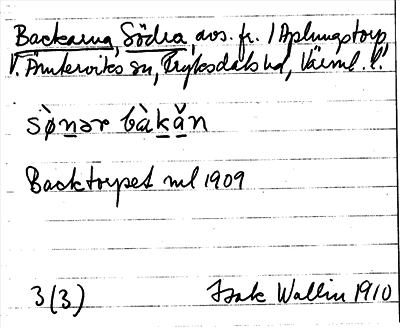 Backarna, Södra, avs. fr. 1 Aplungstorp,
V. Ämterviks sn, Fryksdals hd, Värml. l.
sø̀nər bàkăn
Backtorpet ml 1909
3(3) Isak Wallin 1910